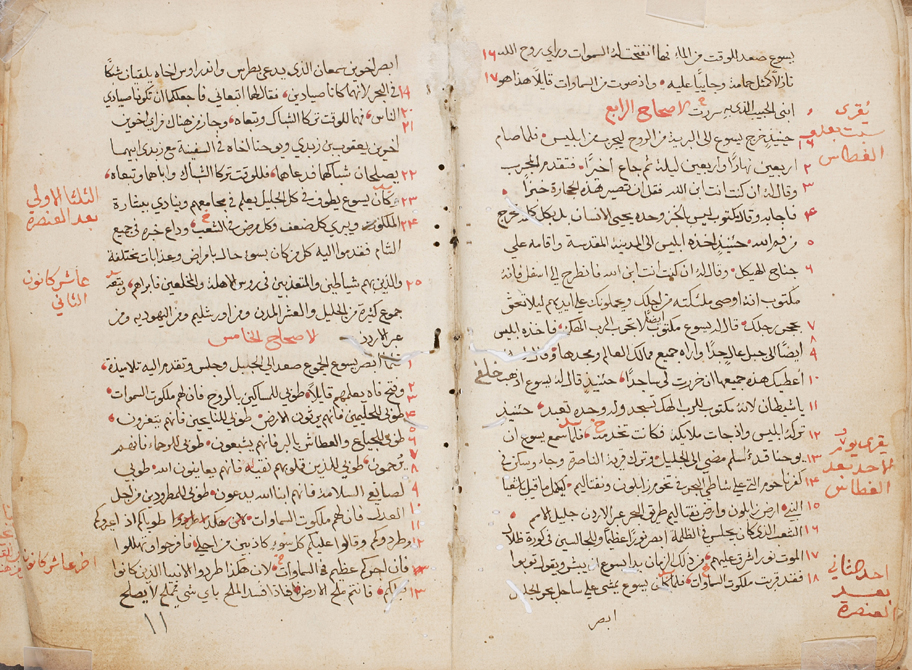 يسوع صعد للوقت من الماء فها انفتحت له السموات وراي روح الله ١٦
نازلاً كمثل حمامة وجايياً عليه واذ صوت من السماوات قايلاً هذا هو ١٧
ابني الحبيب الذي به سررت الاصحاح الرابع
حينيذ خرج يسوع الي البرية من الروح ليجرب من ابليس فلما صام
اربعين نهاراً واربعين ليلة ثم جاع اخراً فتقدم المجرب ٢
وقال له ان كنت انت ابن الله فقل ان تصير هذه الحجارة خبزاً ٣
فاجابه وقال مكتوب ليس بالخبز وحده يحيى الانسان بل بكل كلمة تخرج ۴
من فم الله حينيذ اخذه ابليس الي المدينة المقدسة واقامه علي ٥
جناح الهيكل وقال له ان كنت انت ابن الله فانطرح الي اسفل فانه ٦
مكتوب انه اوصي ملايكته من اجلك ويحملونك علي ايديهم ليلا تعثر
بحجر رجلك قال له يسوع مكتوب ايضاً لا تجرب الرب الهك فاخذه ابليس ٧ ٨
ايضاً الي جبل عال جداً واراه جميع ممالك العالم ومجدها وقال له ٩
اعطيك هذه جميعها ان خررت لي ساجداً حينيذ قال له يسوع اذهب خلفي ١٠
يا شيطان لانه مكتوب للرب الهك تسجد وله وحده تعبد حينيذ ١١
تركه ابليس واذ جات ملايكه فكانت تخدمه فلما سمع يسوع ان ١٢
يوحنا قد اُسلم مضي الي الجليل وترك قرية الناصرة وجاء وسكن في ١٣
كفرناحوم التي علي شاطي البحر في تخوم زابلون ونفتاليم لكيما ما قيل باشعيا ١۴
النبي ارض زابلون وارض نفتاليم طريق البحر عبر الاردن جليل الامم ١٥
الشعب الذي كان يجلس في الظلمة ابصر نوراً عظيماً والجالسين في كورة ظلال ١٦
الموت نور اشرق عليهم من ذلك الزمان بدا يسوع ان يبشر ويقول توبوا ١٧
فقد قربت ملكوت السماوات فلما كان يسوع يمشي علي ساحل بحر الجليل ١٨
ابصر
يُقرى
سبت بعد
الغطاس
يقرى يوم
الاحد بعد
الغطاس
احد الثاني
بعد
العنصرة
ابصر اخوين سمعان الذي يدعي بطرس واندراوس اخاه يلقيان شبكاً
في البحر لانهما كانا صيادين فقال لهما اتبعاني فاجعلكما ان تكونا صيادي ١٩
الناس فهما للوقت تركا الشباك وتبعاه وجاز من هناك فراي اخوين ٢٠ ٢١
اخرين يعقوب بن زبدي ويوحنا اخاه في السفينة مع زبدي ابيهما
يصلحان شباكهما فدعاهما فللوقت تركا الشباك واباهما وتبعاه ٢٢
وكان يسوع يطوف في كل الجليل يعلم في مجامعهم وينادي ببشارة ٢٣
الملكوت ويبري كل ضعف وكل مرض في الشعب وذاع خبره في جميع ٢۴
الشام فقدموا اليه كل من كان بسوء حال بامراض وعذابات مختلفة
والذين بهم شياطين والمتعذبين في روس الاهلة والمخلعين فابراهم وتبعه ٢٥
جموع كثيرة من الجليل والعشر المدن ومن اورشليم ومن اليهودية ومن
عبر الاردن الاصحاح الخامس
فلما ابصر يسوع الجموع صعد الي الجبل وجلس وتقدم اليه تلاميذه ١
وفتح فاه يعلمهم قايلاً طوبي للمساكين بالروح فان لهم ملكوت السموات ٢ ٣
طوبي للحليمين فانهم يرثون الارض طوبي للنايحين فانهم يتعزون ۴
طوبي للجياع والعطاش بالبر فانهم يشبعون طوبي للرحماء فانهم ٥ ٦ ٧
يُرحمون طوبي للذين قلوبهم نقية فانهم يعاينون الله طوبي ٨
لصانعي السلامة فانهم ابنا الله يدعون طوبي للمطرودين من اجل ٩
العدل فان لهم ملكوت السماوات طوباكم اذا عيروكم ١٠ ١١
وطردوكم وقالوا عليكم كل سوء كاذبين من اجلي فافرحوا وتهللوا ١٢
فان اجركم عظيم في السماوات لان هكذا طردوا الانبيا الذين كانوا
قبلكم فانتم ملح الارض فاذا فسد الملح باي شي يملح لا يصلح ١٣
١١
الثلثا الاولي
بعد العنصرة
عاشر كانون
الثاني